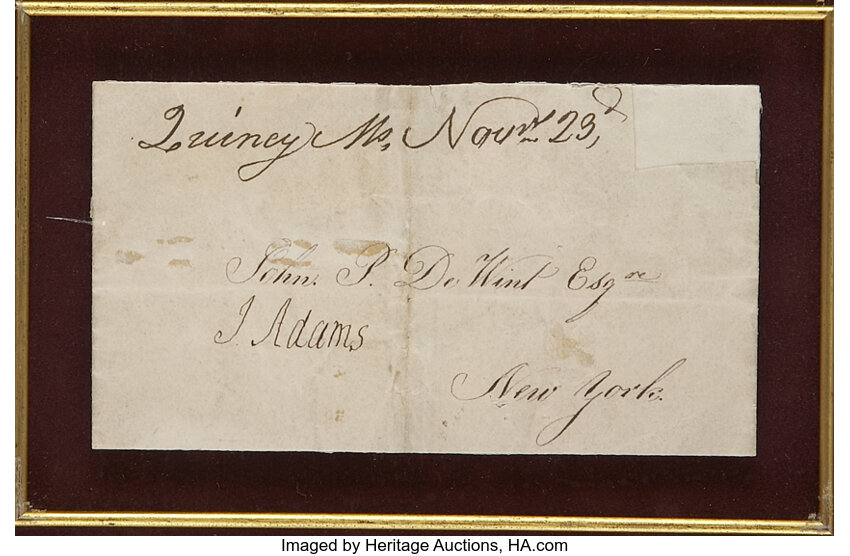 Quincy Ms, Novr. 23d,
John. P. De Wint Esqre
J. Adams
New York.
Imaged by Heritage Auctions, HA.com